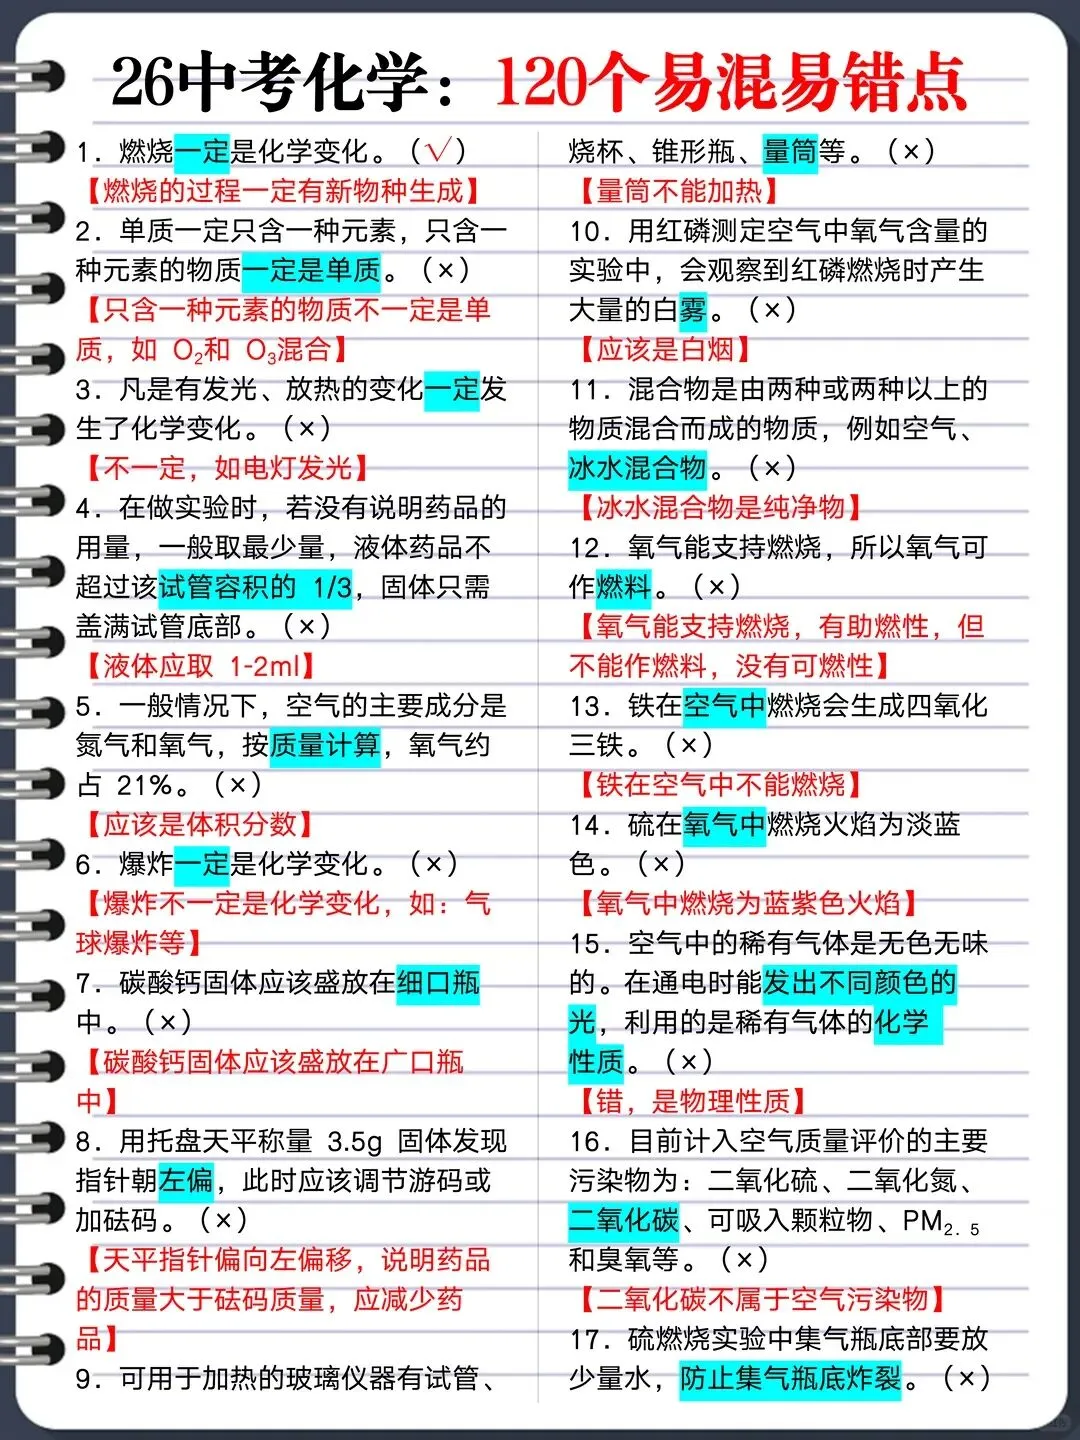 26中考化学：120个易混易错点
1. 燃烧一定是化学变化。（√）
【燃烧的过程一定有新物种生成】
2. 单质一定只含一种元素，只含一
种元素的物质一定是单质。（×）
【只含一种元素的物质不一定是单
质，如 O₂和 O₃混合】
3. 凡是有发光、放热的变化一定发
生了化学变化。（×）
【不一定，如电灯发光】
4. 在做实验时，若没有说明药品的
用量，一般取最少量，液体药品不
超过该试管容积的 1/3，固体只需
盖满试管底部。（×）
【液体应取 1-2ml】
5. 一般情况下，空气的主要成分是
氮气和氧气，按质量计算，氧气约
占 21%。（×）
【应该是体积分数】
6. 爆炸一定是化学变化。（×）
【爆炸不一定是化学变化，如：气
球爆炸等】
7. 碳酸钙固体应该盛放在细口瓶
中。（×）
【碳酸钙固体应该盛放在广口瓶
中】
8. 用托盘天平称量 3.5g 固体发现
指针朝左偏，此时应该调节游码或
加砝码。（×）
【天平指针偏向左偏移，说明药品
的质量大于砝码质量，应减少药
品】
9. 可用于加热的玻璃仪器有试管、
烧杯、锥形瓶、量筒等。（×）
【量筒不能加热】
10. 用红磷测定空气中氧气含量的
实验中，会观察到红磷燃烧时产生
大量的白雾。（×）
【应该是白烟】
11. 混合物是由两种或两种以上的
物质混合而成的物质，例如空气、
冰水混合物。（×）
【冰水混合物是纯净物】
12. 氧气能支持燃烧，所以氧气可
作燃料。（×）
【氧气能支持燃烧，有助燃性，但
不能作燃料，没有可燃性】
13. 铁在空气中燃烧会生成四氧化
三铁。（×）
【铁在空气中不能燃烧】
14. 硫在氧气中燃烧火焰为淡蓝
色。（×）
【氧气中燃烧为蓝紫色火焰】
15. 空气中的稀有气体是无色无味
的。在通电时能发出不同颜色的
光，利用的是稀有气体的化学
性质。（×）
【错，是物理性质】
16. 目前计入空气质量评价的主要
污染物为：二氧化硫、二氧化氮、
二氧化碳、可吸入颗粒物、PM₂.₅
和臭氧等。（×）
【二氧化碳不属于空气污染物】
17. 硫燃烧实验中集气瓶底部要放
少量水，防止集气瓶底炸裂。（×）